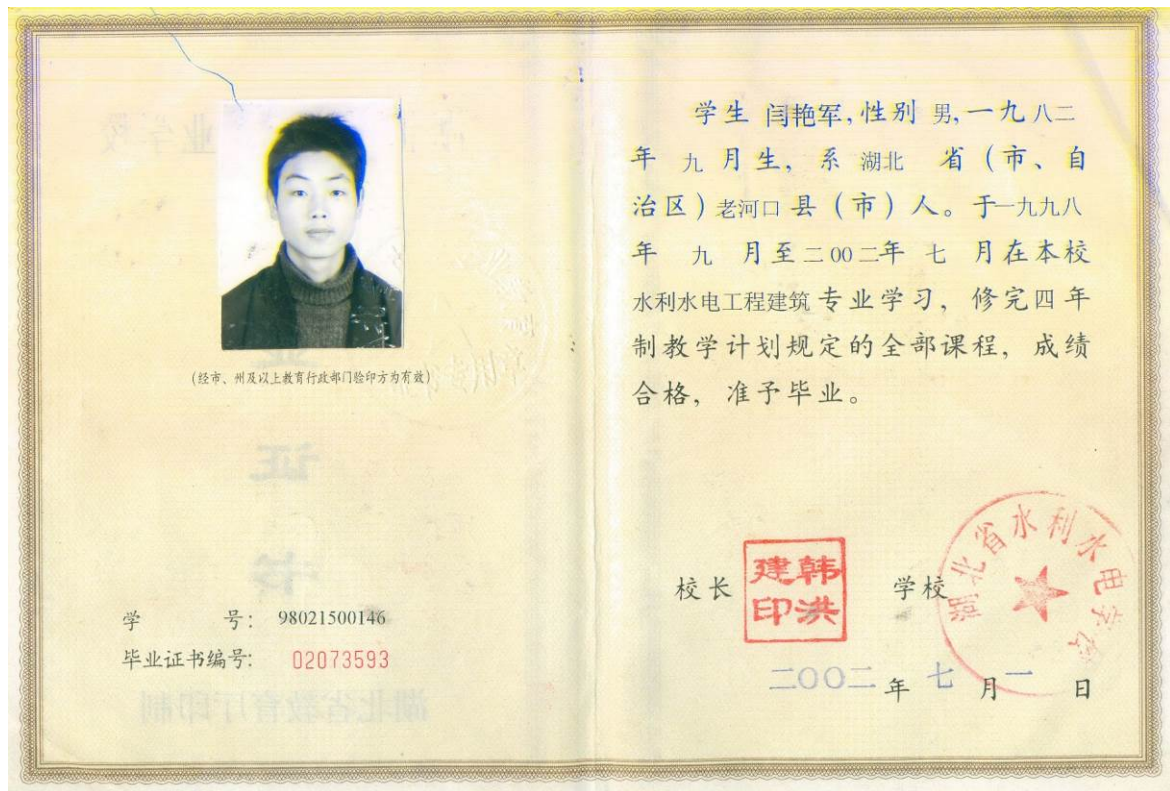 (经市、州及以上教育行政部门验印方为有效)
学 号: 98021500146
毕业证书编号: 02073593
学生 闫艳军,性别 男,一九八二
年 九 月生, 系 湖北 省(市、自
治区)老河口县(市)人。于一九九八
年 九 月至二00二年 七 月在本校
水利水电工程建筑专业学习, 修完四年
制教学计划规定的全部课程, 成绩
合格, 准予毕业。
校长
韩洪建印
学校
湖北省水利水电学校
二〇〇二年 七 月一 日
证
书
湖北省教育厅印制